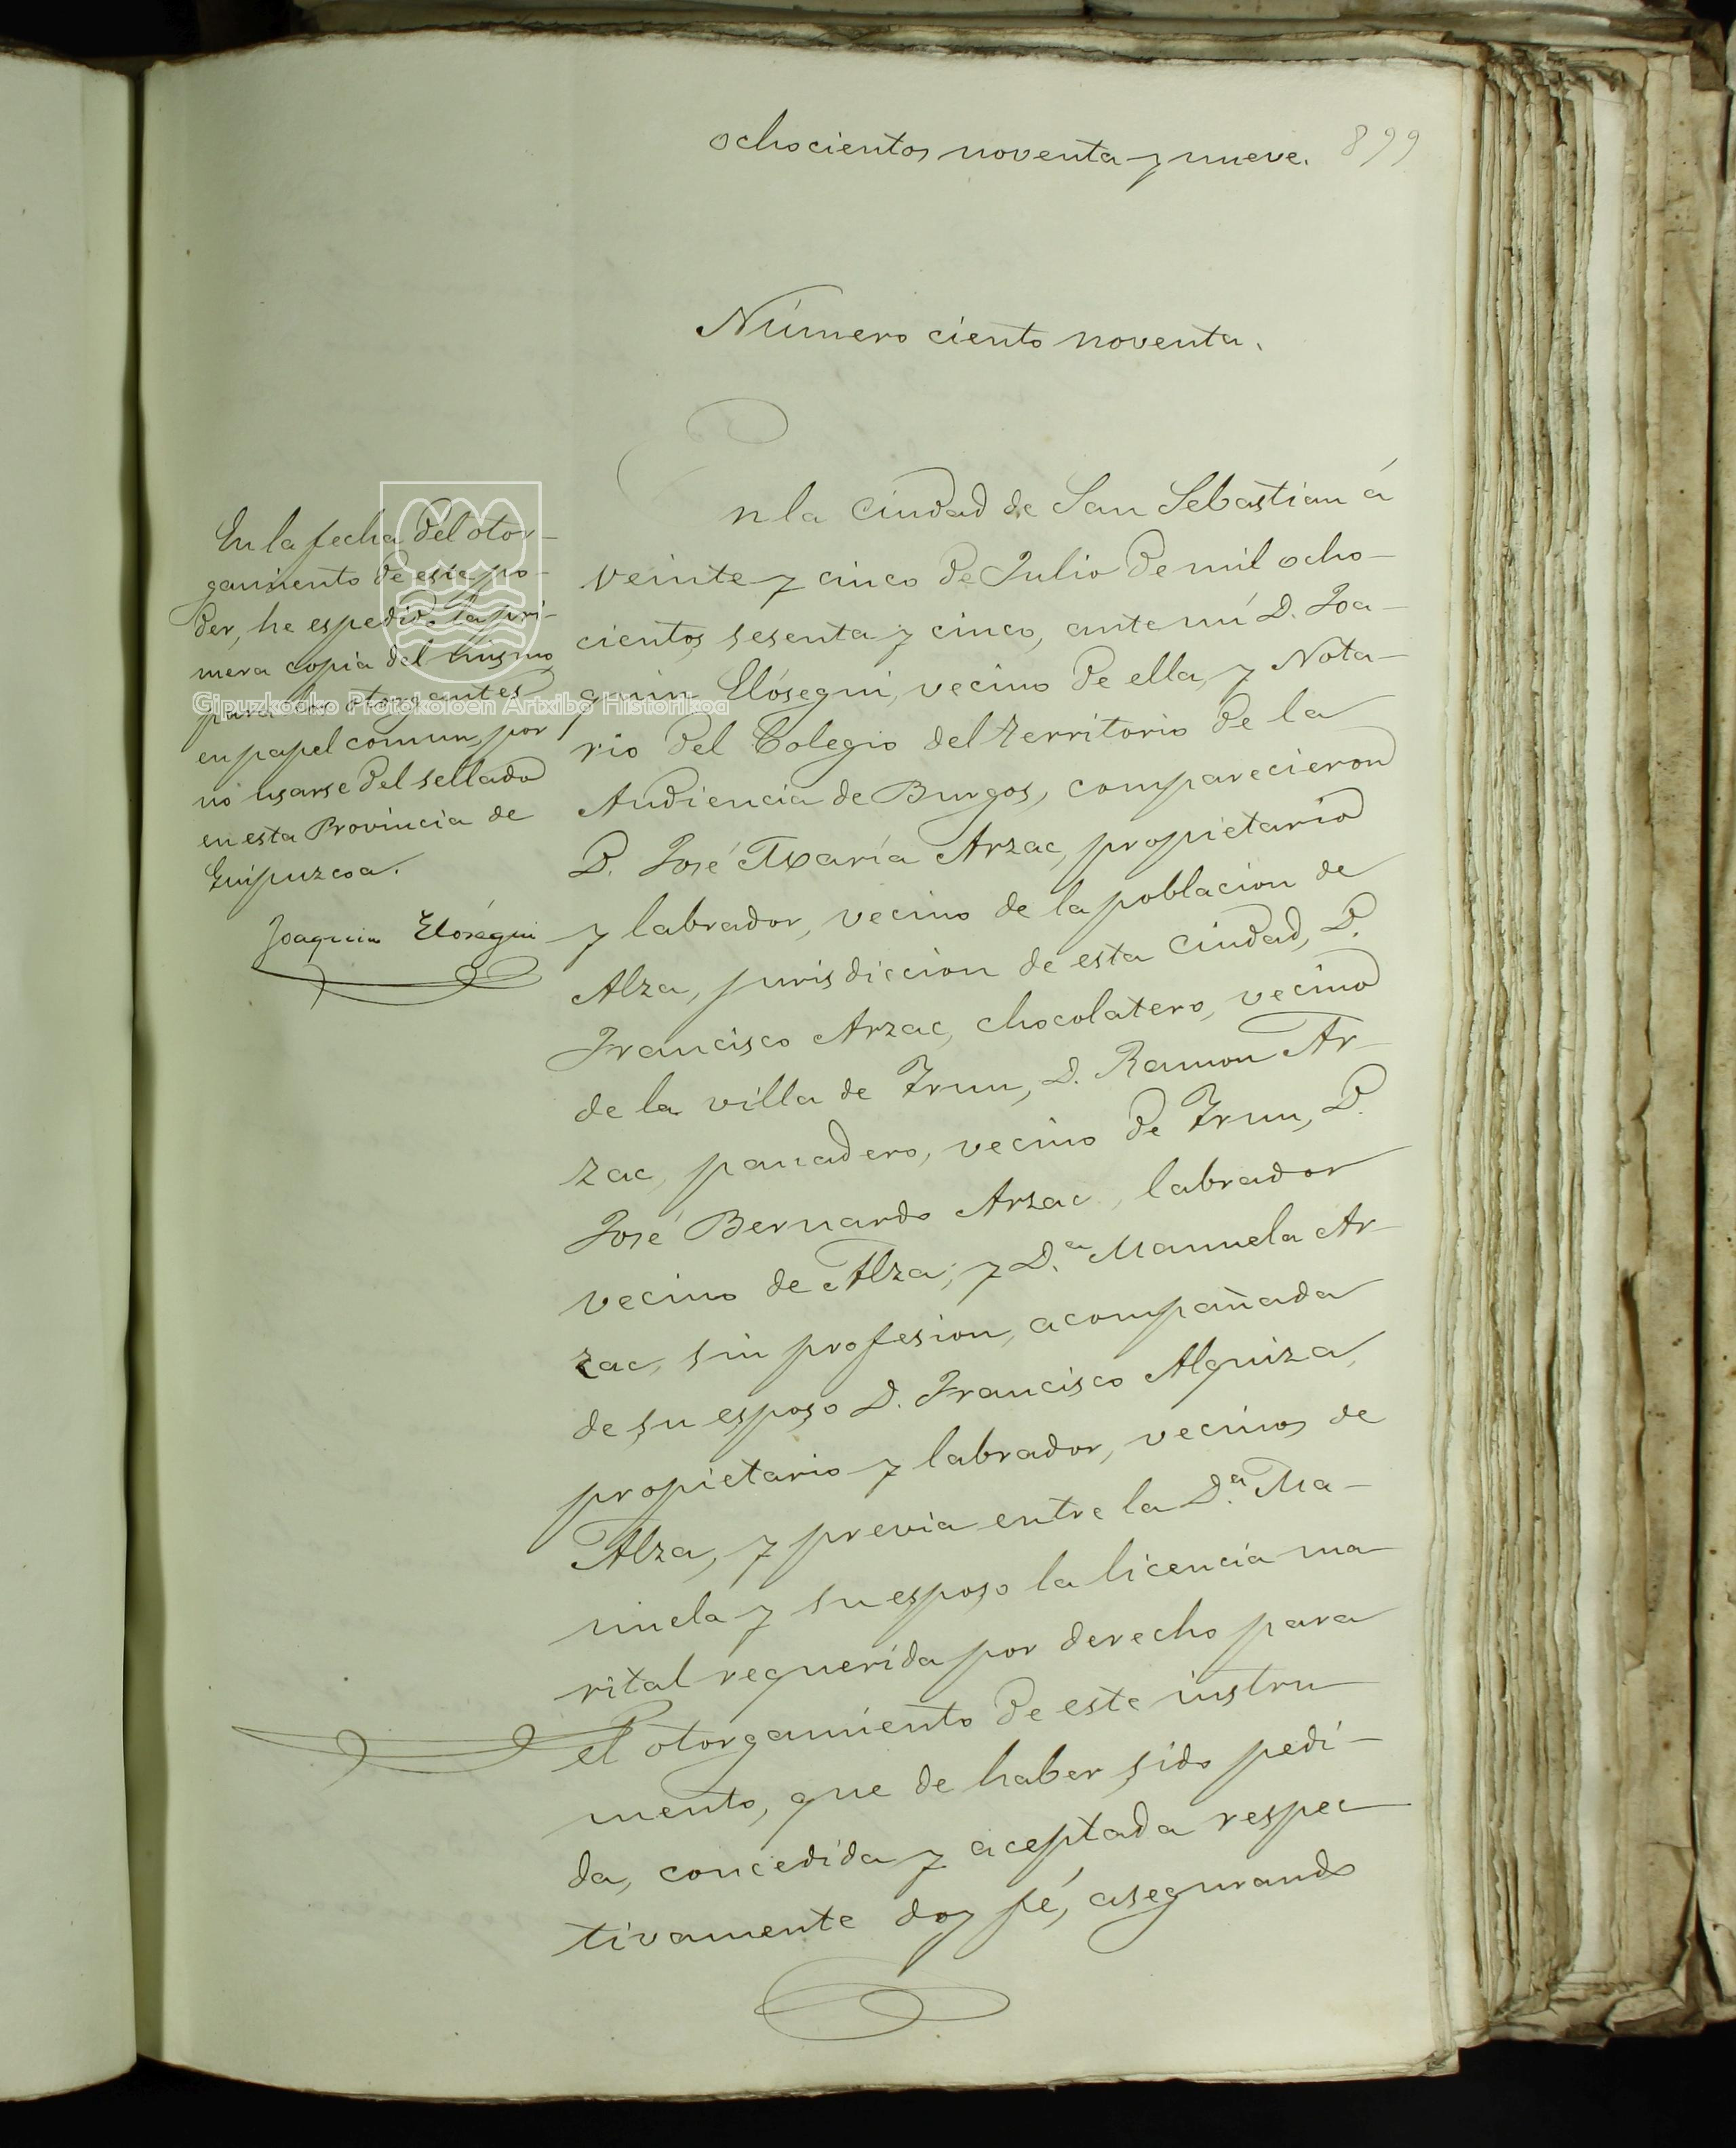 ochocientos noventa y nueve. 899
Número ciento noventa.
En la fecha del otor-
gamiento de este po-
der, he espedido la pri-
mera copia del mismo
para los otorgantes
en papel comun, por
no usarse del sellado
en esta Provincia de
Guipuzcoa.
Joaquin Elósegui
En la Ciudad de San Sebastian á
veinte y cinco de Julio de mil ocho-
cientos sesenta y cinco, ante mí D. Joa-
quin Elósegui, vecino de ella, y Nota-
rio del Colegio del territorio de la
Audiencia de Burgos, comparecieron
D. José María Arzac, propietario
y labrador, vecino de la poblacion de
Alza, jurisdiccion de esta Ciudad, D.
Francisco Arzac, chocolatero, vecino
de la villa de Irun, D. Ramon Ar-
zac, panadero, vecino de Irun, D.
José Bernardo Arzac, labrador
vecino de Alza; y D.ª Manuela Ar-
zac, sin profesion, acompañada
de su esposo D. Francisco Alquiza,
propietario y labrador, vecinos de
Alza, y previa entre la D.ª Ma-
nuela y su esposo la licencia ma-
rital requerida por derecho para
el otorgamiento de este instru-
mento, que de haber sido pedi-
da, concedida y aceptada respec-
tivamente doy fé, asegurando
Gipuzkoako Protokoloen Artxibo Historikoa